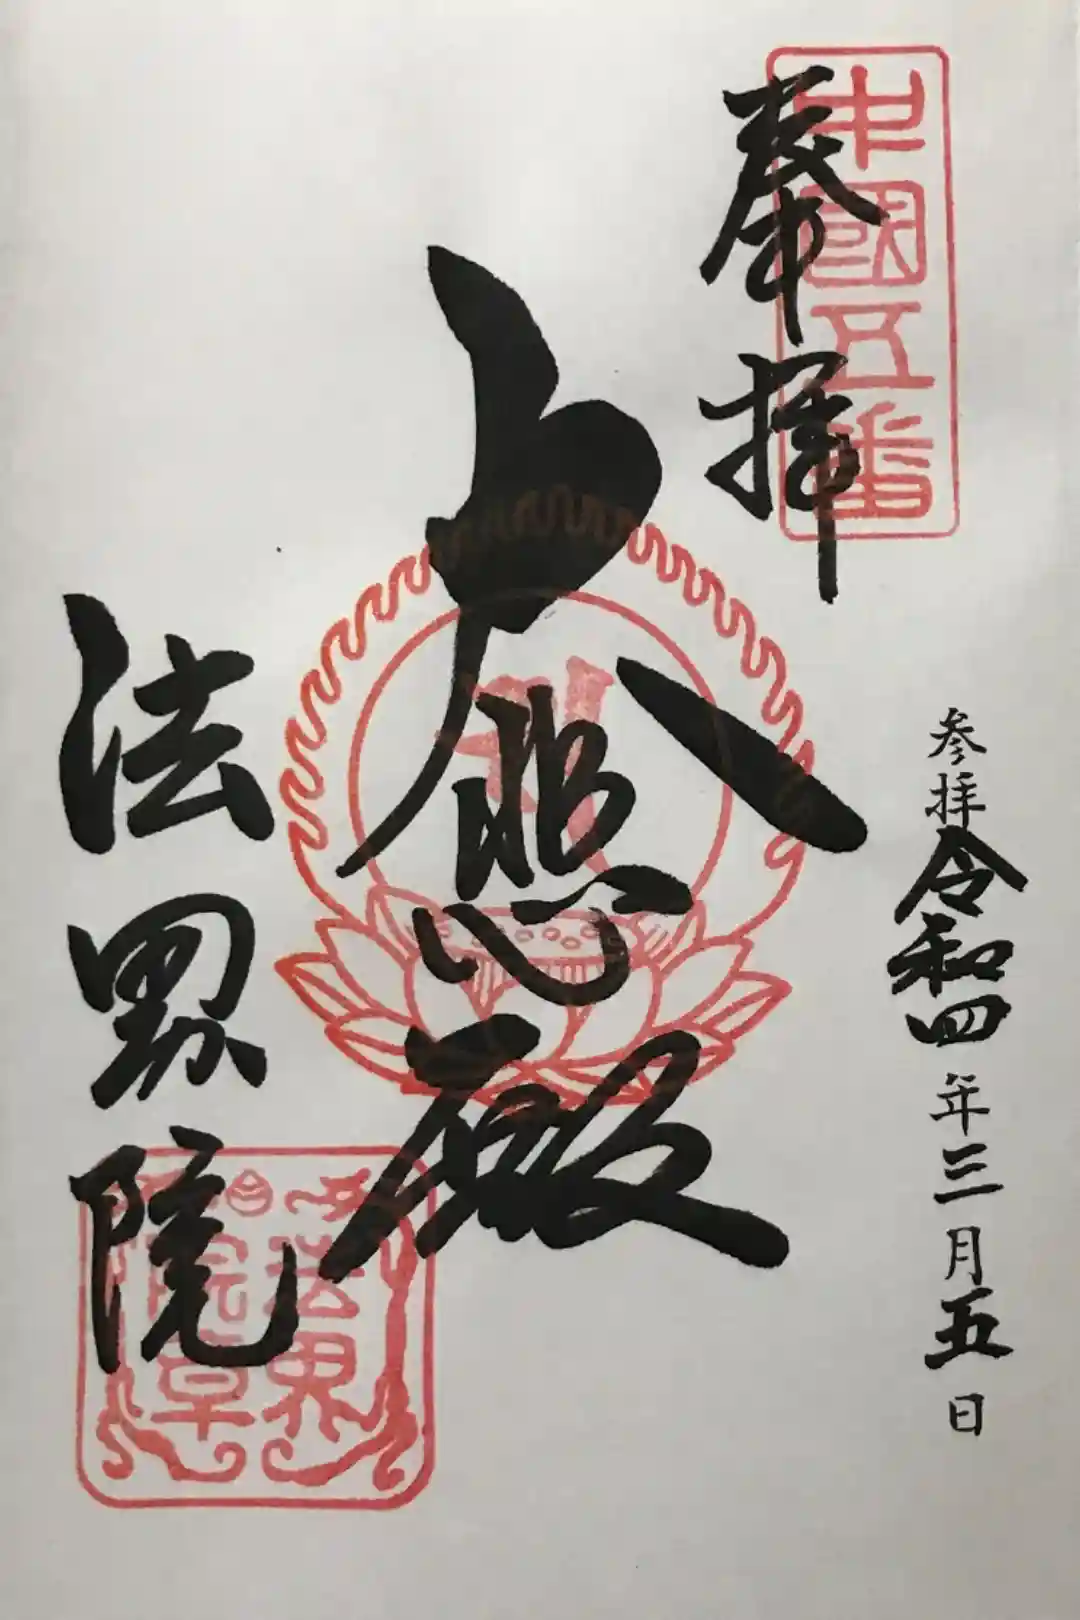 参拝令和四年三月五日
奉拝
中國五番
大悲殿
法界院
法界
院章